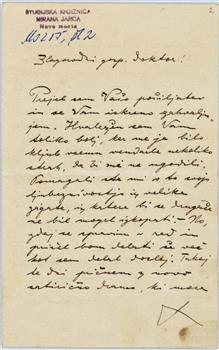 ŠTUDIJSKA KNJIŽNICA
MIRANA JARCA
Novo mesto
Ms 215, št. 2
2
Blagorodni gosp. doktor!
Prejel sem Vašo pošiljatev
in se Vam iskreno zahvalju-
jem. Hvaležen sem Vam
toliko bolj, ker me je bilo
kljub vsemu vendarle nekoliko
strah, da ži me ne ugodili.
Pomagali ste mi s to svojo
ljubeznivostjo iz velike
zagate, iz katere bi se drugače
ne bil mogel izkopati. – No,
zdaj se spravim v red in
pričel bom delati še več
kot sem delal doslej. Takoj
te dni pričnem z novo
satirično dramo, ki mora